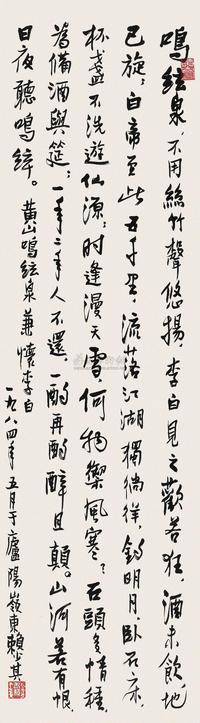 鳴弦泉,不用絲竹聲悠揚,李白見之歡若狂,酒未飲,地
已旋;白帝至此五千里,流落江湖獨徜徉,釣明月,臥石床,
杯盞不洗遊仙源;時逢漫天雪,何物禦風寒?石頭多情種,
為備酒與筵;一年二年人不還,一酌再酌醉且顛。山河若有恨,
日夜聽鳴弦。黃山鳴弦泉兼懷李白
一九八四年五月于廬陽嶺東賴少其